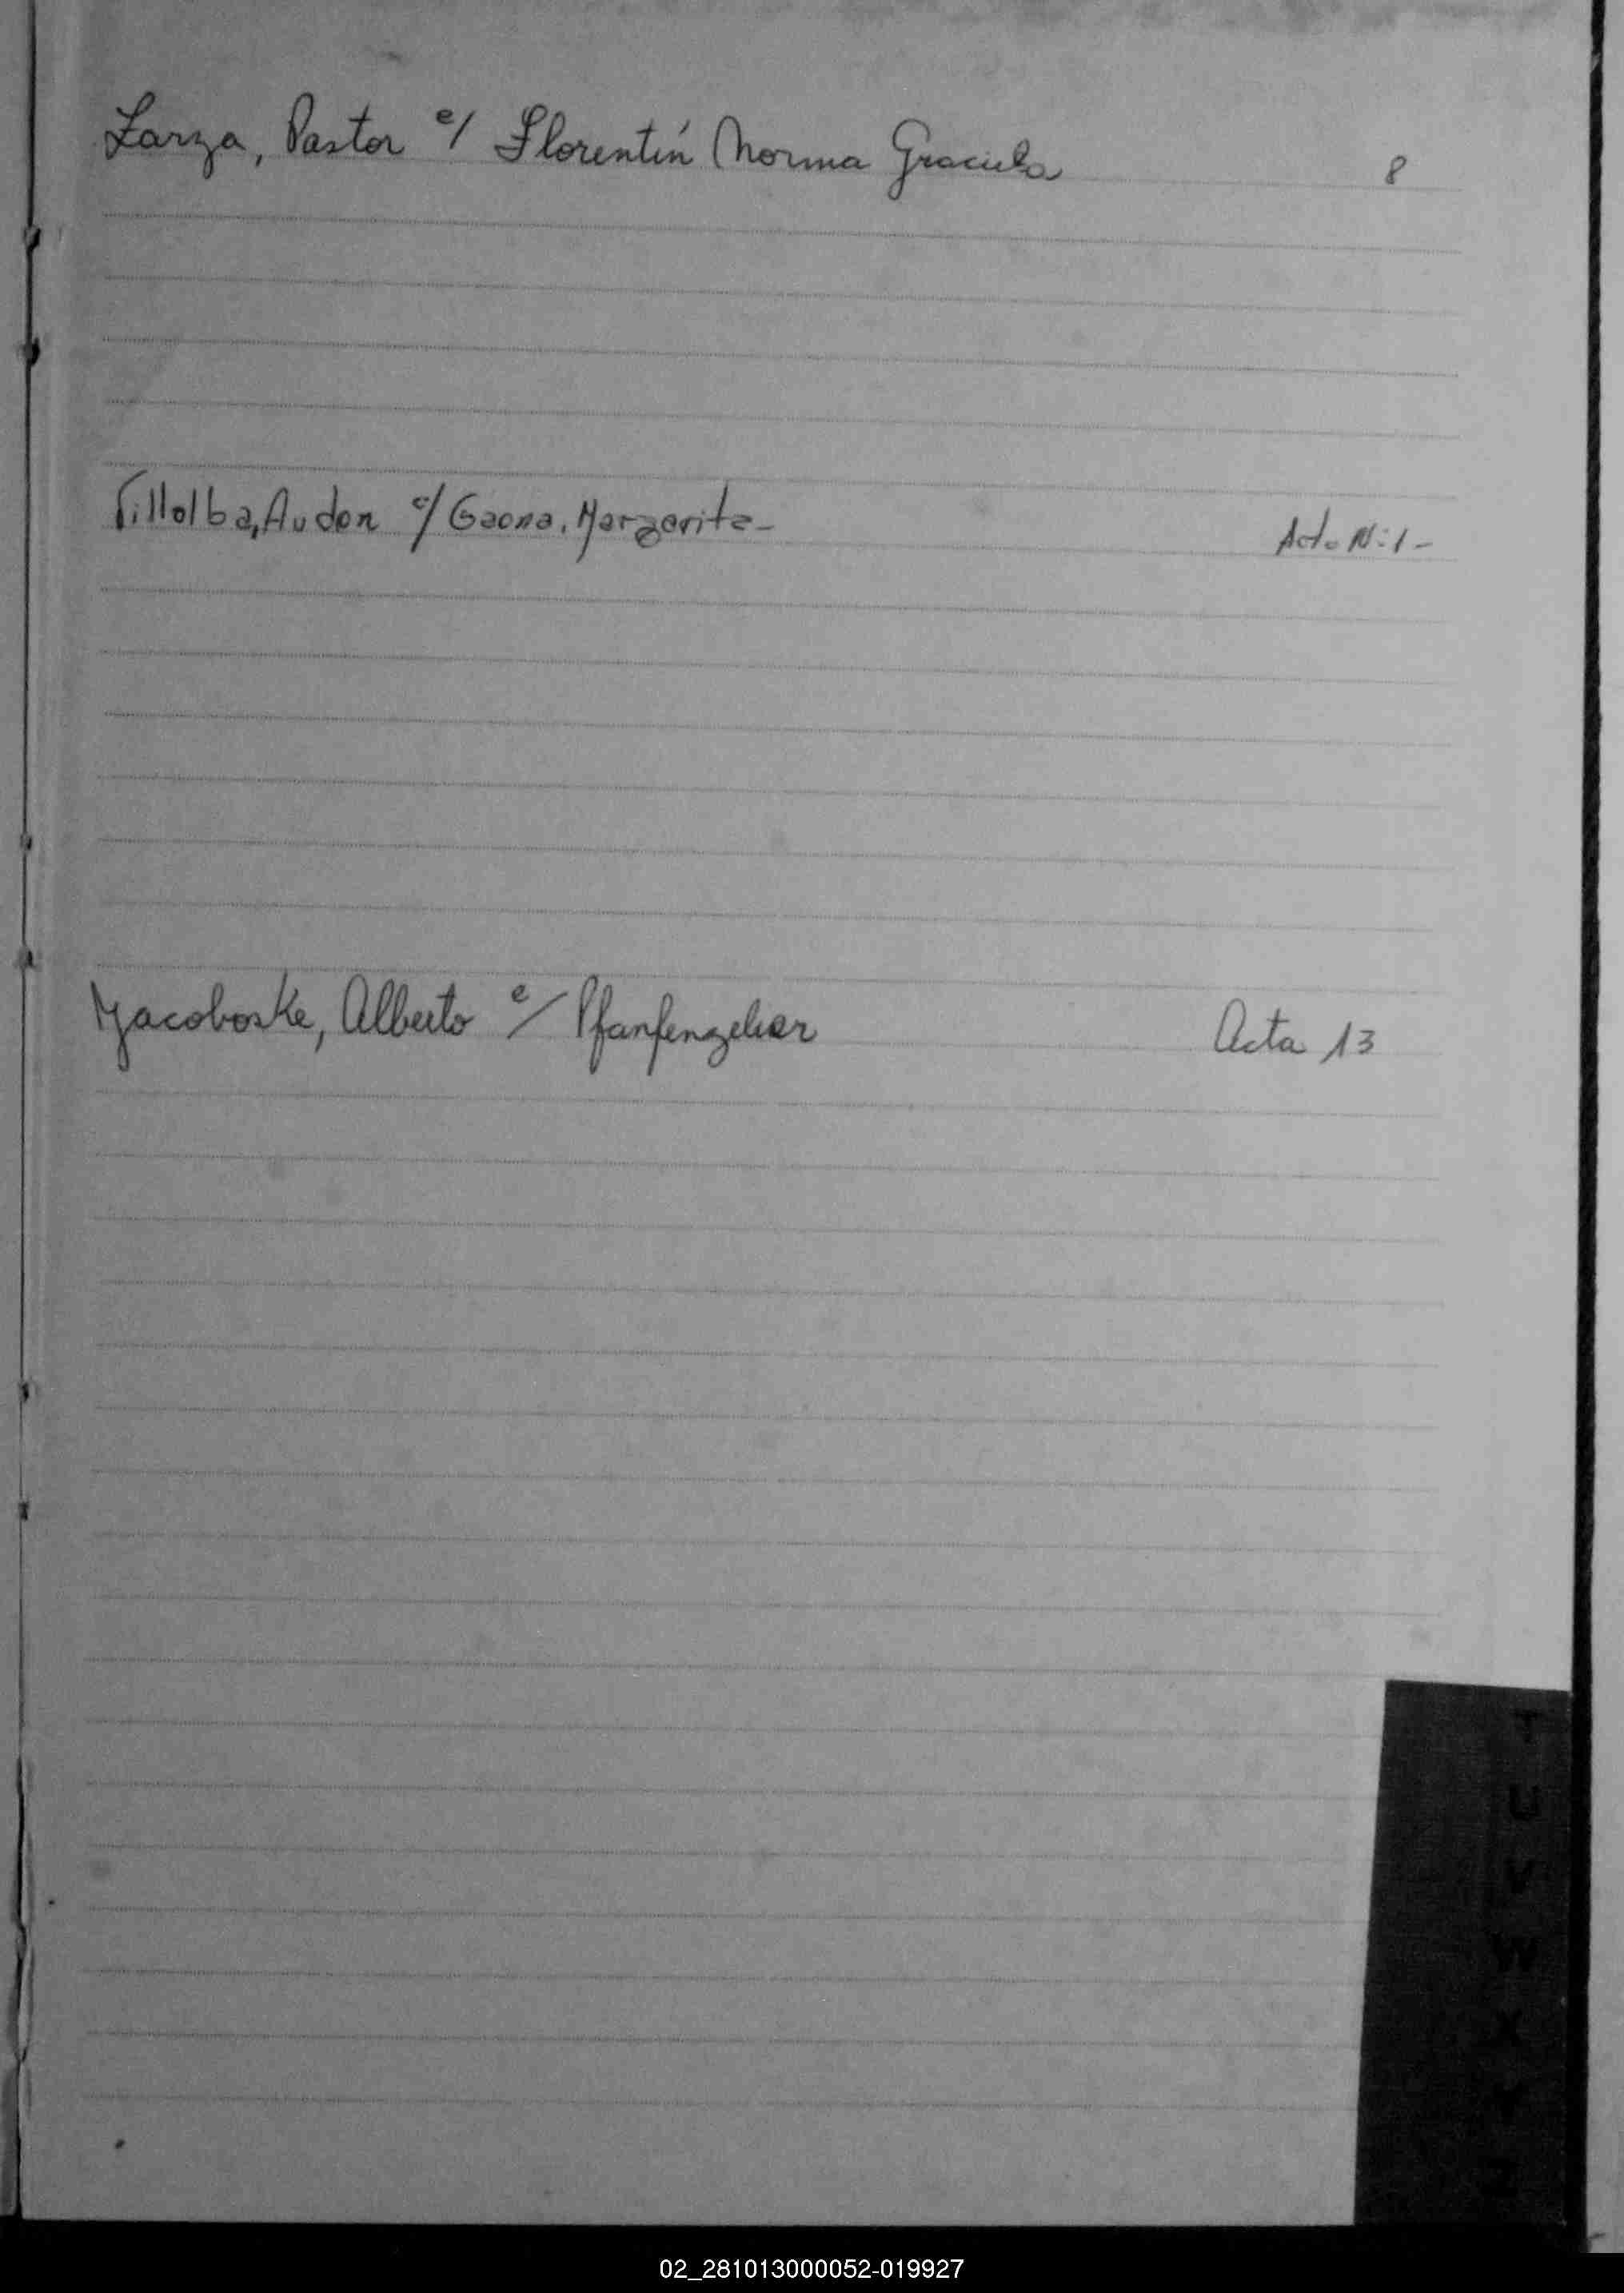 Zarza, Pastor c/ Florentín Norma Graciela 8
Villalba, Audon c/ Gaona, Margarita - Acta N:1-
Yacoboske, Alberto c/ Pfanfenzeliar Acta 13
T
U
V
W
X
Y
Z
02_281013000052-019927